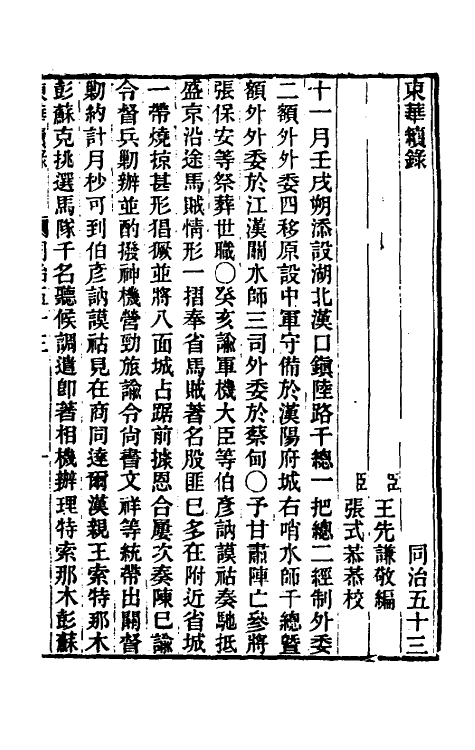 東華續錄　同治五十三
臣王先謙敬編
臣張式恭恭校
十一月壬戌朔添設湖北漢口鎭陸路千總一把總二經制外委
二額外外委四移原設中軍守備於漢陽府城右哨水師千總曁
額外外委於江漢關水師三司外委於蔡甸〇予甘肅陣亡參將
張保安等祭葬世職〇癸亥諭軍機大臣等伯彥訥謨祜奏馳抵
盛京沿途馬賊情形一摺奉省馬賊著名股匪已多在附近省城
一帶燒掠甚形猖獗並將八面城占踞前據恩合屢次奏陳已諭
令督兵勦辦並酌撥神機營勁旅諭令尙書文祥等統帶出關督
勦約計月杪可到伯彥訥謨祜見在商同達爾漢親王索特那木
彭蘇克挑選馬隊千名聽候調遣卽著相機辦理特索那木彭蘇
東華續錄　同治五十三　一